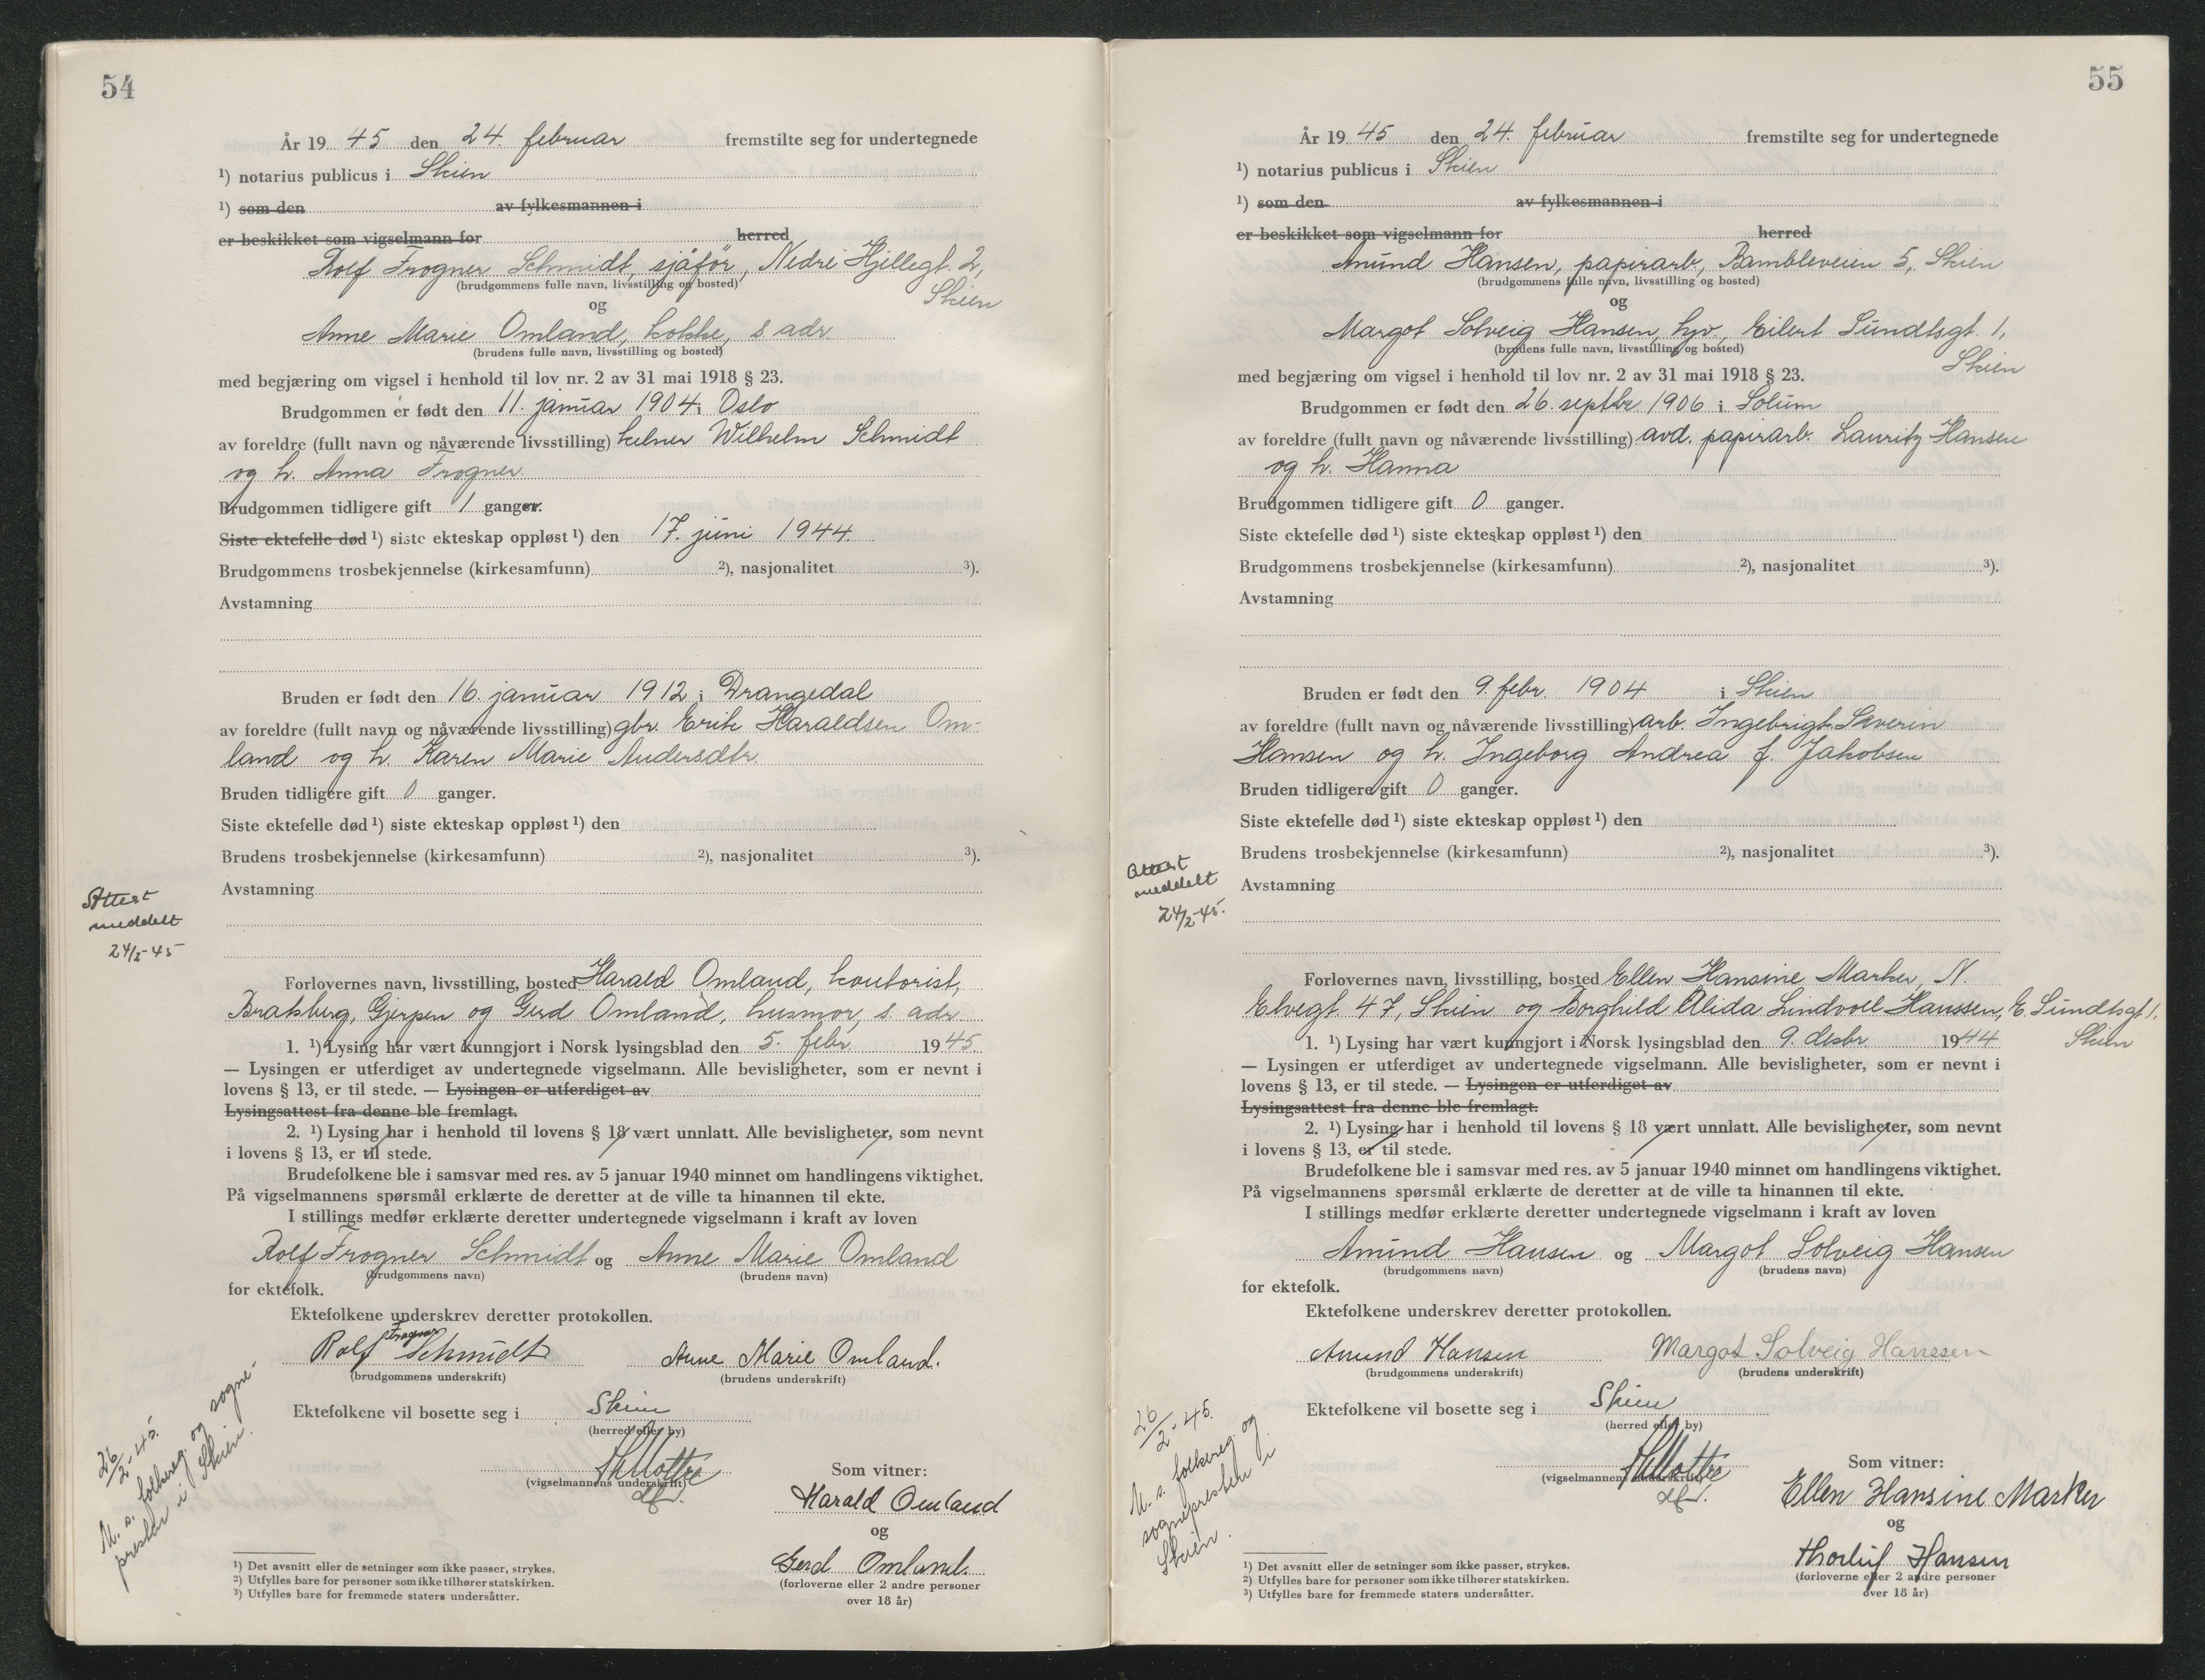 54
År 19 45 den 24. februar fremstilte seg for undertegnede
¹) notarius publicus i Skien
¹) som den av fylkesmannen i
er beskikket som vigselmann for herred
Rolf Frogner Schmidt, sjåfør, Nedre Hjellegt. 2,
(brudgommens fulle navn, livsstilling og bosted)
Skien
og
Anne Marie Omland, kokke, s. adr.
(brudens fulle navn, livsstilling og bosted)
med begjæring om vigsel i henhold til lov nr. 2 av 31 mai 1918 § 23.
Brudgommen er født den 11. januar 1904 i Oslo
av foreldre (fullt navn og nåværende livsstilling) kelner Wilhelm Schmidt
og h. Anna Frogner.
Brudgommen tidligere gift 1 ganger.
Siste ektefelle død ¹) siste ekteskap oppløst ¹) den 17. juni 1944.
Brudgommens trosbekjennelse (kirkesamfunn) ²), nasjonalitet ³).
Avstamning
Bruden er født den 16. januar 1912 i Drangedal
av foreldre (fullt navn og nåværende livsstilling) gbr. Erik Haraldsen Om-
land og h. Karen Marie Andersdtr.
Bruden tidligere gift 0 ganger.
Siste ektefelle død ¹) siste ekteskap oppløst ¹) den
Brudens trosbekjennelse (kirkesamfunn) ²), nasjonalitet ³).
Avstamning
Attest
meddelt
24/2-45
Forlovernes navn, livsstilling, bosted Harald Omland, kontorist,
Bratsberg, Gjerpen og Gerd Omland, husmor, s. adr.
1. ¹) Lysing har vært kunngjort i Norsk lysingsblad den 5. febr. 1945.
— Lysingen er utferdiget av undertegnede vigselmann. Alle bevisligheter, som er nevnt i
lovens § 13, er til stede. — Lysingen er utferdiget av
Lysingsattest fra denne ble fremlagt.
2. ¹) Lysing har i henhold til lovens § 18 vært unnlatt. Alle bevisligheter, som nevnt
i lovens § 13, er til stede.
Brudefolkene ble i samsvar med res. av 5 januar 1940 minnet om handlingens viktighet.
På vigselmannens spørsmål erklærte de deretter at de ville ta hinannen til ekte.
I stillings medfør erklærte deretter undertegnede vigselmann i kraft av loven
Rolf Frogner Schmidt og Anne Marie Omland
(brudgommens navn) (brudens navn)
for ektefolk.
Ektefolkene underskrev deretter protokollen.
Rolf Frogner Schmidt Anne Marie Omland.
(brudgommens underskrift) (brudens underskrift)
Ektefolkene vil bosette seg i Skien
(herred eller by)
(vigselmannens underskrift)
Som vitner:
Harald Omland
og
Gerd Omland.
(forloverne eller 2 andre personer
over 18 år)
26/2-45.
M. s. folkereg. og sogne-
prester i Skien.
¹) Det avsnitt eller de setninger som ikke passer, strykes.
²) Utfylles bare for personer som ikke tilhører statskirken.
³) Utfylles bare for fremmede staters undersåtter.
55
År 19 45 den 24. februar fremstilte seg for undertegnede
¹) notarius publicus i Skien
¹) som den av fylkesmannen i
er beskikket som vigselmann for herred
Amund Hansen, papirarb., Bambleveien 5, Skien
(brudgommens fulle navn, livsstilling og bosted)
og
Margot Solveig Hansen, hjv., Eilert Sundtsgt. 1,
(brudens fulle navn, livsstilling og bosted)
Skien
med begjæring om vigsel i henhold til lov nr. 2 av 31 mai 1918 § 23.
Brudgommen er født den 26. septbr. 1906 i Solum
av foreldre (fullt navn og nåværende livsstilling) avd. papirarb. Lauritz Hansen
og h. Hanna
Brudgommen tidligere gift 0 ganger.
Siste ektefelle død ¹) siste ekteskap oppløst ¹) den
Brudgommens trosbekjennelse (kirkesamfunn) ²), nasjonalitet ³).
Avstamning
Bruden er født den 9. febr. 1904 i Skien
av foreldre (fullt navn og nåværende livsstilling) arb. Ingebrigt Severin
Hansen og h. Ingeborg Andrea f. Jakobsen
Bruden tidligere gift 0 ganger.
Siste ektefelle død ¹) siste ekteskap oppløst ¹) den
Brudens trosbekjennelse (kirkesamfunn) ²), nasjonalitet ³).
Avstamning
Attest
meddelt
24/2-45.
Forlovernes navn, livsstilling, bosted Ellen Hansine Marker, N.
Elvegt. 47, Skien og Borghild Alida Lindvoll Hanssen, E. Sundtsgt. 1,
Skien
1. ¹) Lysing har vært kunngjort i Norsk lysingsblad den 9. desbr. 1944
— Lysingen er utferdiget av undertegnede vigselmann. Alle bevisligheter, som er nevnt i
lovens § 13, er til stede. — Lysingen er utferdiget av
Lysingsattest fra denne ble fremlagt.
2. ¹) Lysing har i henhold til lovens § 18 vært unnlatt. Alle bevisligheter, som nevnt
i lovens § 13, er til stede.
Brudefolkene ble i samsvar med res. av 5 januar 1940 minnet om handlingens viktighet.
På vigselmannens spørsmål erklærte de deretter at de ville ta hinannen til ekte.
I stillings medfør erklærte deretter undertegnede vigselmann i kraft av loven
Amund Hansen og Margot Solveig Hansen
(brudgommens navn) (brudens navn)
for ektefolk.
Ektefolkene underskrev deretter protokollen.
Amund Hansen Margot Solveig Hanssen
(brudgommens underskrift) (brudens underskrift)
Ektefolkene vil bosette seg i Skien
(herred eller by)
(vigselmannens underskrift)
Som vitner:
Ellen Hansine Marker
og
Thorleif Hansen
(forloverne eller 2 andre personer
over 18 år)
26/2-45.
M. s. folkereg. og
sogneprester i
Skien.
¹) Det avsnitt eller de setninger som ikke passer, strykes.
²) Utfylles bare for personer som ikke tilhører statskirken.
³) Utfylles bare for fremmede staters undersåtter.